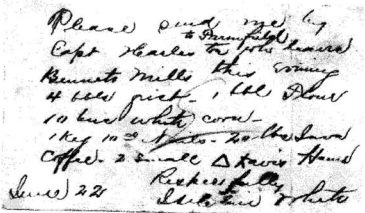 Please send me by
to Bromfield
Capt Harles
Bennets Mills this Evening
4 bbls - 1 bbl Flour
10 bus white corn -
1 Keg 10d Nails - 20 lbs Java
Coffee - 2 small Δ Davis Hams
Respectfully
June 22 White